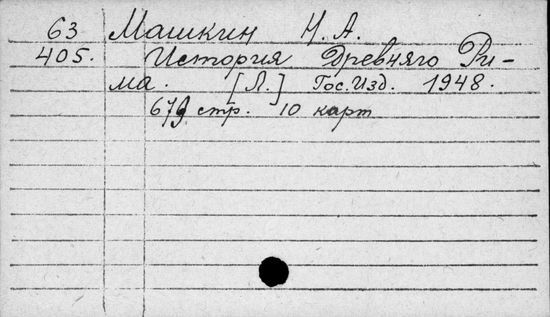 63 Машкин Н. А.
405. История Древняго Ри-
ма. [Л.] Гос.Изд. 1948.
679 стр. 10 карт